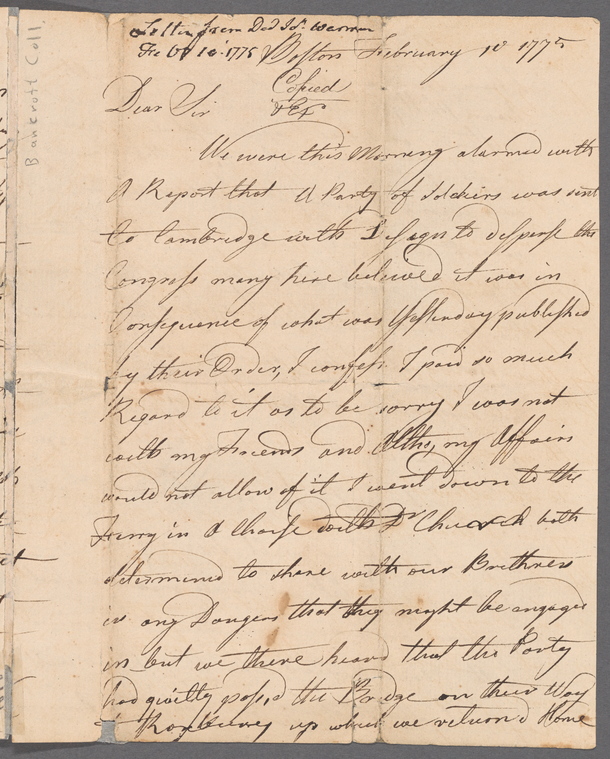 Letter from Doct Jos. Warren
Feb 10. 1775
Boston February 10 1775
Copied
& Ex
Bancroft Coll
Dear Sir
We were this Morning alarmed with
A Report that A Party of Soldiers was sent
to Cambridge with Design to disperse the
Congress many here believed it was in
Consequence of what was Yesterday published
by their Order, I confess I paid so much
Regard to it as to be sorry I was not
with my Friends and Altho, my Affairs
would not allow of it I went down to the
Ferry in A Chaise with Dr Church both
determined to share with our Brethren
in any Dangers that they might be engaged
in but we there heard that the Party
had quietly passed the Bridge on their Way
to Roxbury up which we returnd Home